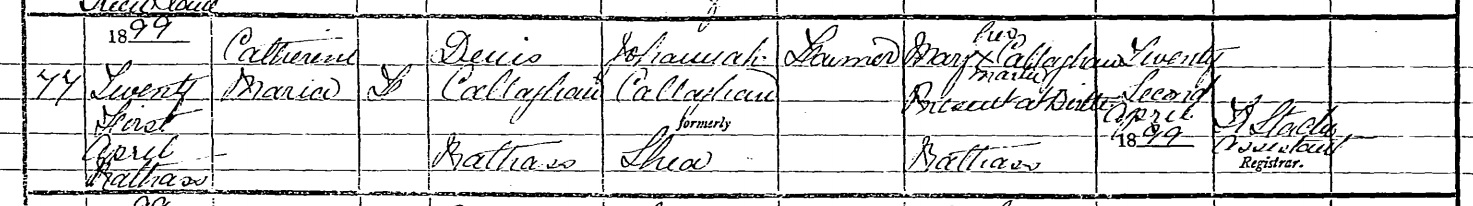 1899
77
Twenty
First
April
Rathass
Catherine
Maria
F
Denis
Callaghan
Rathass
Johannah
Callaghan
formerly
Shea
Farmer
her
Mary X Callaghan
mark
Present at Birth
Rathass
Twenty
Second
April
1899
Assistant
Registrar.